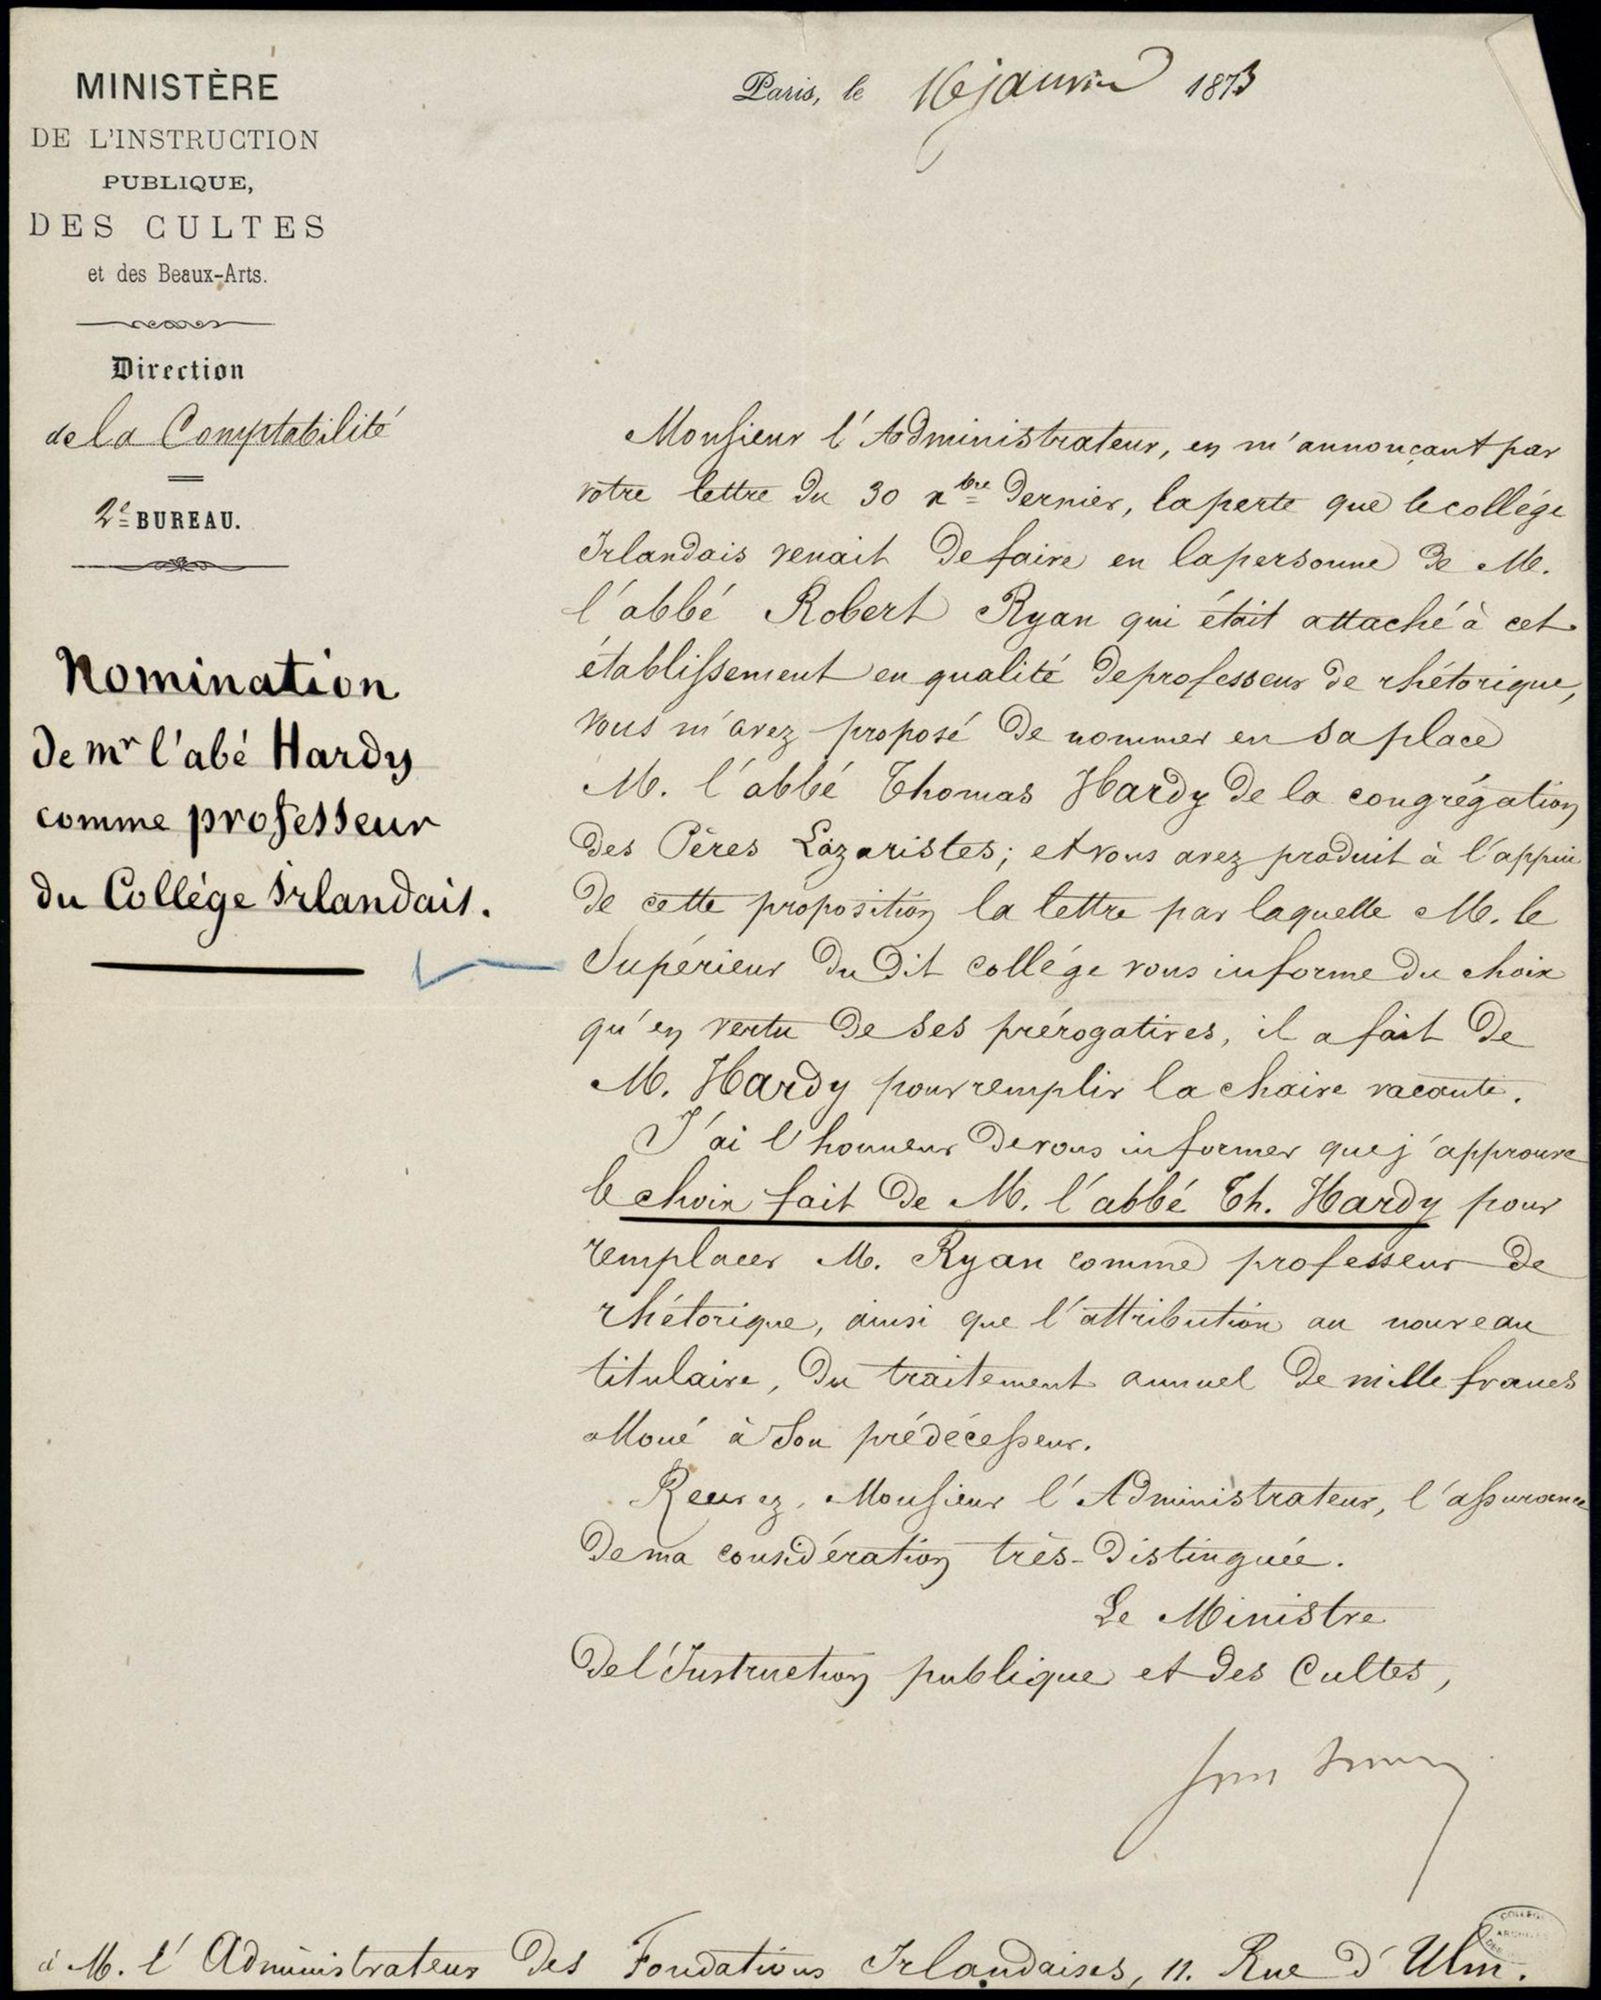 MINISTÈRE
DE L'INSTRUCTION
PUBLIQUE,
DES CULTES
et des Beaux-Arts.
Direction
de la Comptabilité
2e BUREAU.
Nomination
de mr l'abé Hardy
comme professeur
du Collége Irlandais.
Paris, le 16 janvier 1873
Monsieur l'Administrateur, en m'annonçant par
votre lettre du 30 xbre dernier, la perte que le collége
Irlandais venait de faire en la personne de M.
l'abbé Robert Ryan qui était attaché à cet
établissement en qualité de professeur de rhétorique,
vous m'avez proposé de nommer en sa place
M. l'abbé Thomas Hardy de la congrégation
des Pères Lazaristes; et vous avez produit à l'appui
de cette proposition la lettre par laquelle M. le
Supérieur du dit collége vous informe du choix
qu'en vertu de ses prérogatives, il a fait de
M. Hardy pour remplir la chaire vacante.
J'ai l'honneur de vous informer que j'approuve
le choix fait de M. l'abbé Th. Hardy pour
remplacer M. Ryan comme professeur de
rhétorique, ainsi que l'attribution au nouveau
titulaire, du traitement annuel de mille francs
alloué à son prédécesseur.
Recevez, Monsieur l'Administrateur, l'assurance
de ma considération très-distinguée.
Le Ministre
de l'Instruction publique et des Cultes,
à M. l'Administrateur des Fondations Irlandaises, 11. Rue d'Ulm.